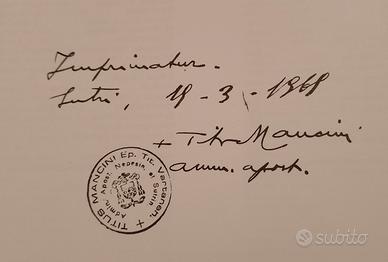 Imprimatur.
Sutri, 19 - 3 - 1968
+ Tito Mancini
amm. apost.
+ TITUS MANCINI Ep. Tit. Vertanen.
Admin. Apost. Nepesin. et Sutrin
subito